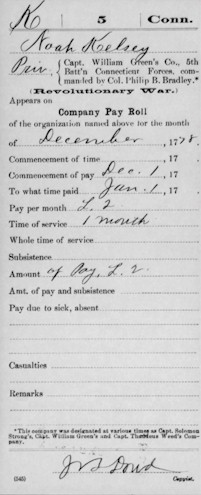 K | 5 | Conn.
Noah Kelsey
Priv., { Capt. William Green's Co., 5th
Batt'n Connecticut Forces, com-
manded by Col. Philip B. Bradley.*
(Revolutionary War.)
Appears on
Company Pay Roll
of the organization named above for the month
of December, 1778.
Commencement of time , 17 .
Commencement of pay Dec. 1 , 17 .
To what time paid Jan. 1 , 17 .
Pay per month £. 2
Time of service 1 month
Whole time of service
Subsistence
Amount of Pay, £. 2.
Amt. of pay and subsistence
Pay due to sick, absent
Casualties
Remarks
*This company was designated at various times as Capt. Solomon
Strong's, Capt. William Green's and Capt. Thaddeus Weed's Com-
pany.
Dowd
(545) Copyist.